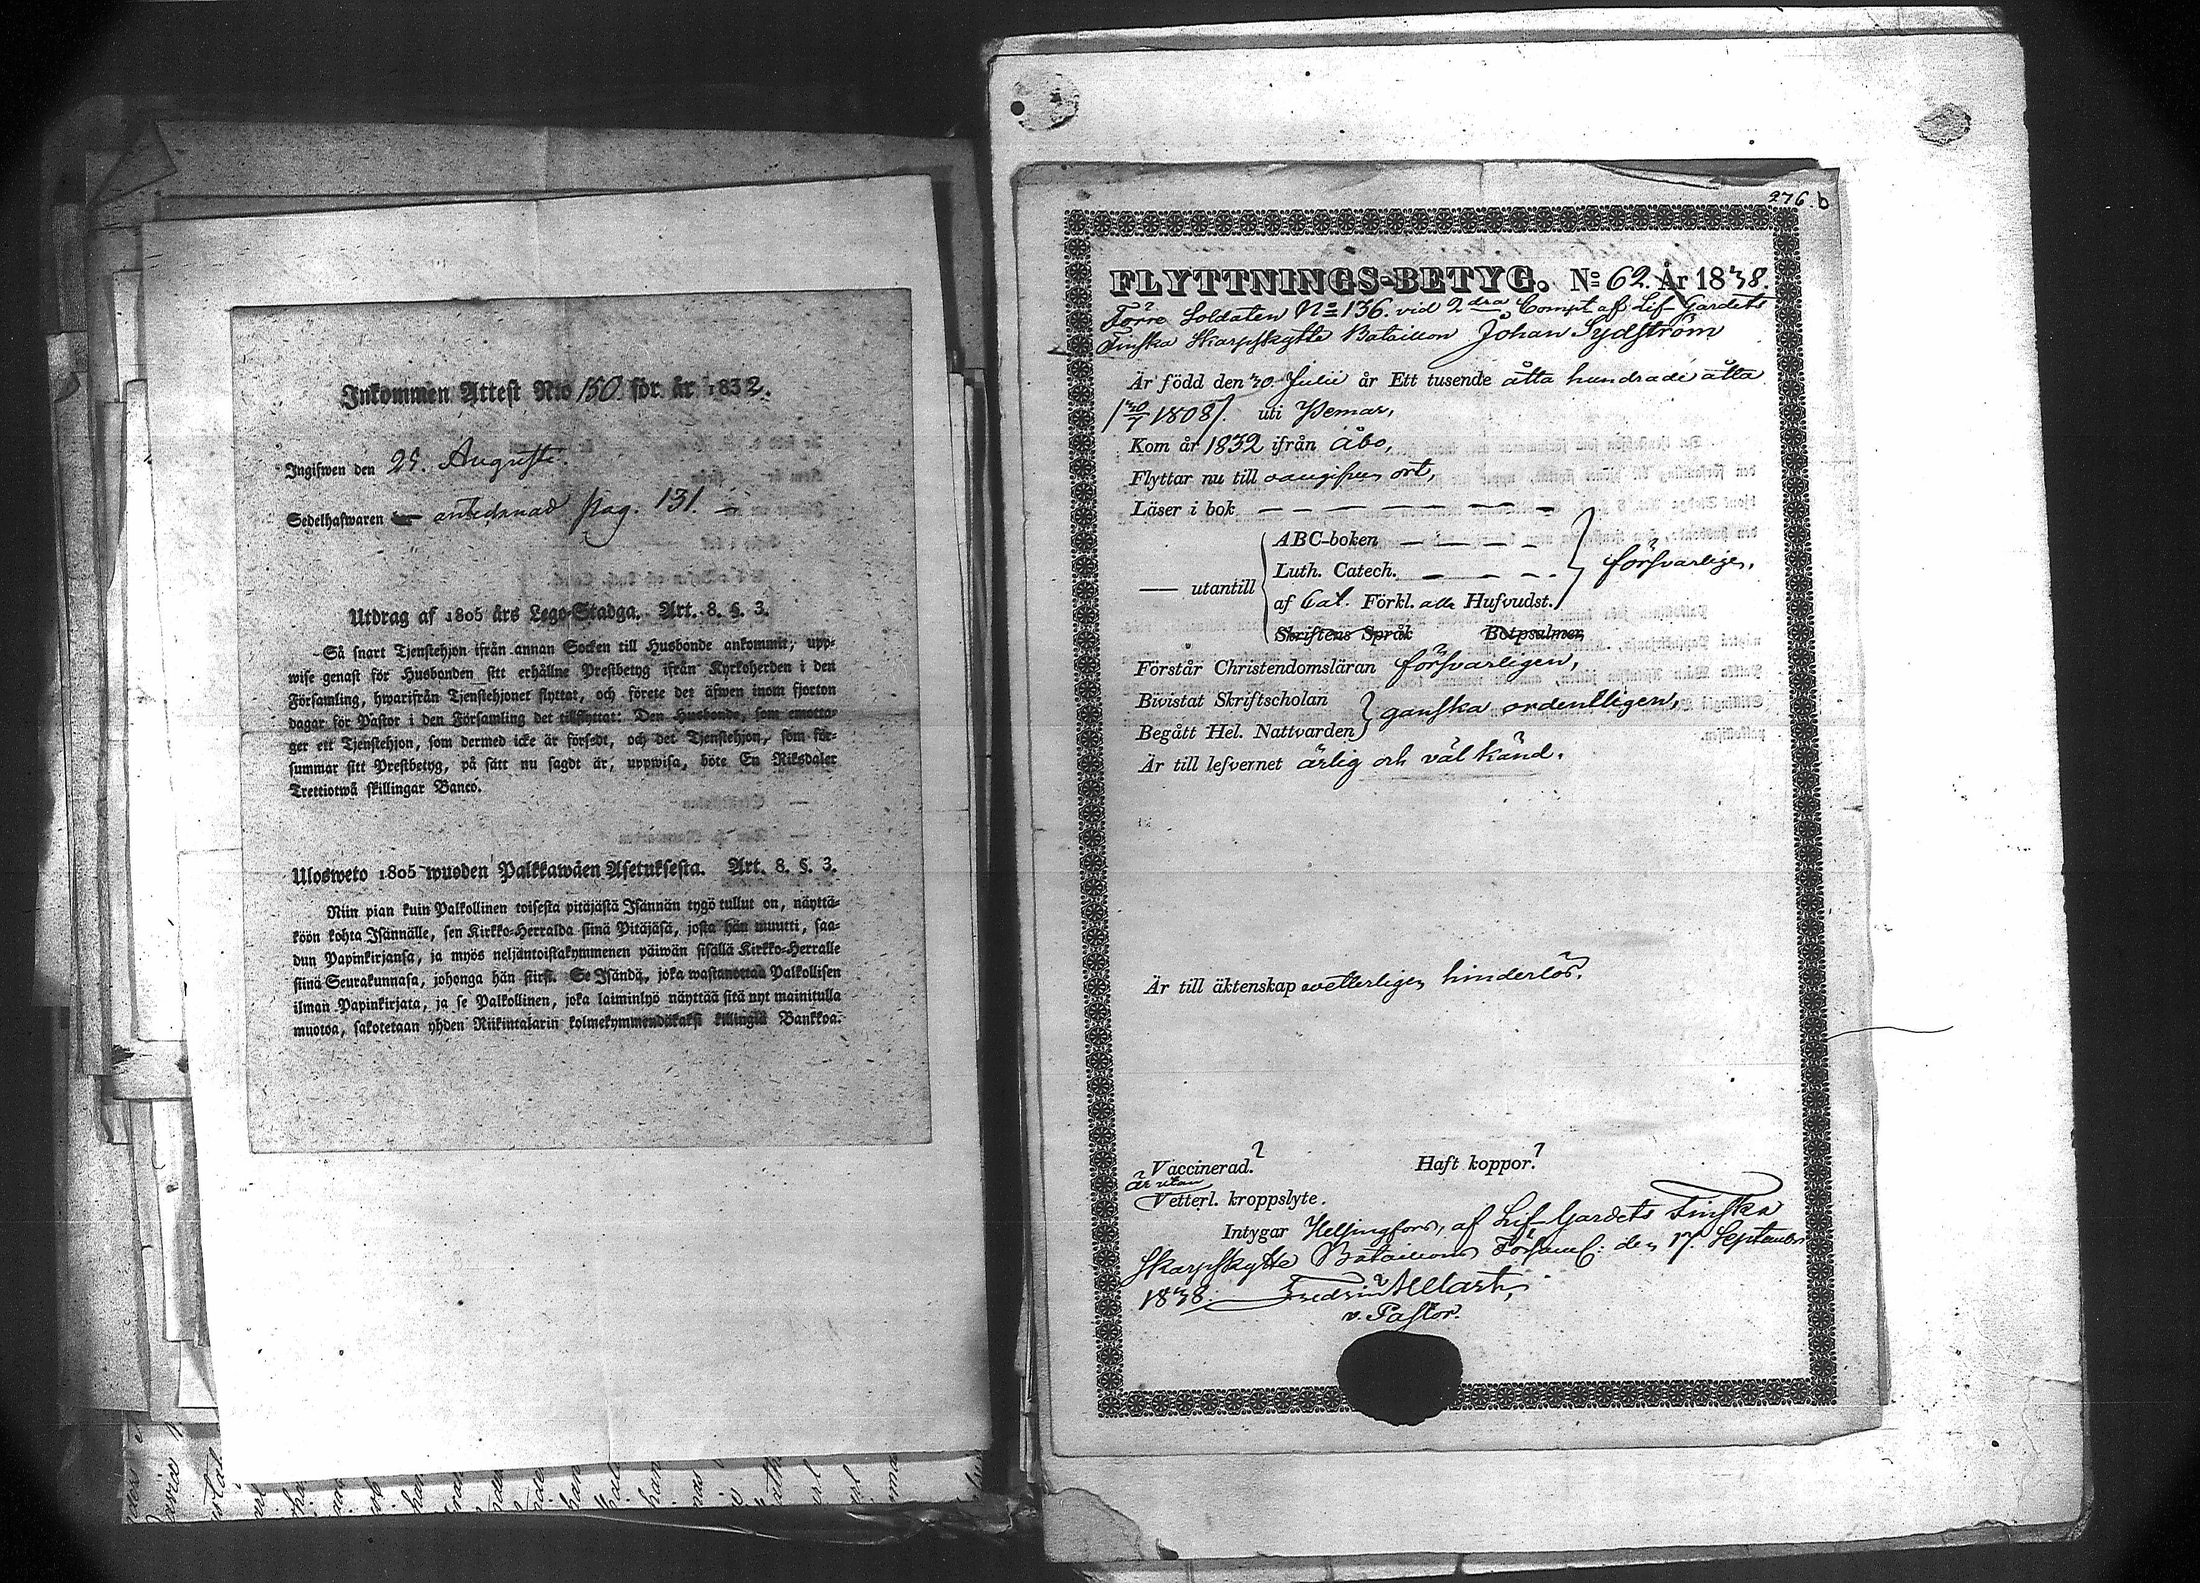 Inkommen Attest N:o 150 för år 1832.
Ingifwen den 29. Augusti.
Sedelhafwaren antecknad pag. 131.
Utdrag af 1805 års Lego-Stadga. Art. 8. §. 3.
Så snart Tjenstehjon ifrån annan Socken till Husbonde ankommit, upp-
wise genast för Husbonden sitt erhållne Prestbetyg ifrån Kyrkoherden i den
Församling, hwarifrån Tjenstehjonet flyttat, och förete det äfwen inom fjorton
dagar för Pastor i den Församling det tillflyttat: Den Husbonde, som emotta-
ger ett Tjenstehjon, som dermed icke är försedt, och det Tjenstehjon, som för-
summar sitt Prestbetyg, på sätt nu sagdt är, uppwisa, böte En Riksdaler
Trettiotwå skillingar Banco.
Ulosweto 1805 wuoden Palkkawäen Asetuksesta. Art. 8. §. 3.
Niin pian kuin Palkollinen toisesta pitäjästä Isännän tygö tullut on, näyttä-
köön kohta Isännälle, sen Kirkko-Herralda siinä Pitäjäsä, josta hän muutti, saa-
dun Papinkirjansa, ja myös neljäntoistakymmenen päiwän sisällä Kirkko-Herralle
siinä Seurakunnasa, johonga hän siirsi. Se Isändä, joka wastanottaa Palkollisen
ilman Papinkirjata, ja se Palkollinen, joka laiminlyö näyttää sitä nyt mainitulla
muotoa, sakotetaan yhden Riikintalarin kolmekymmendäkaksi killingiä Bankkoa.
276.b
FLYTTNINGS-BETYG. No 62. År 1838.
Förre Soldaten No 136. vid 2dra Compt af Lif-Gardets
Finska Skarpskytte Bataillon Johan Sydström
Är född den 30 Julii år Ett tusende åtta hundrade åtta
/30/7 1808/. uti Pemar,
Kom år 1832 ifrån Åbo,
Flyttar nu till ort,
Läser i bok — — — — — —
ABC-boken — — — —
— utantill Luth. Catech. — — — försvarligen,
af Cat. Förkl. alla Hufvudst.
Skriftens Språk Botpsalmer,
Förstår Christendomsläran försvarligen,
Bivistat Skriftscholan
Begått Hel. Nattvarden ganska ordentligen,
Är till lefvernet ärlig och väl känd.
Är till äktenskap vetterligen hinderlös.
Vaccinerad.? Haft koppor.?
är utan
Vetterl. kroppslyte.
Intygar Helsingfors, af Lif-Gardets Finska
Skarpskytte Bataillons Församl: den 17. September
1838.
v. Pastor.